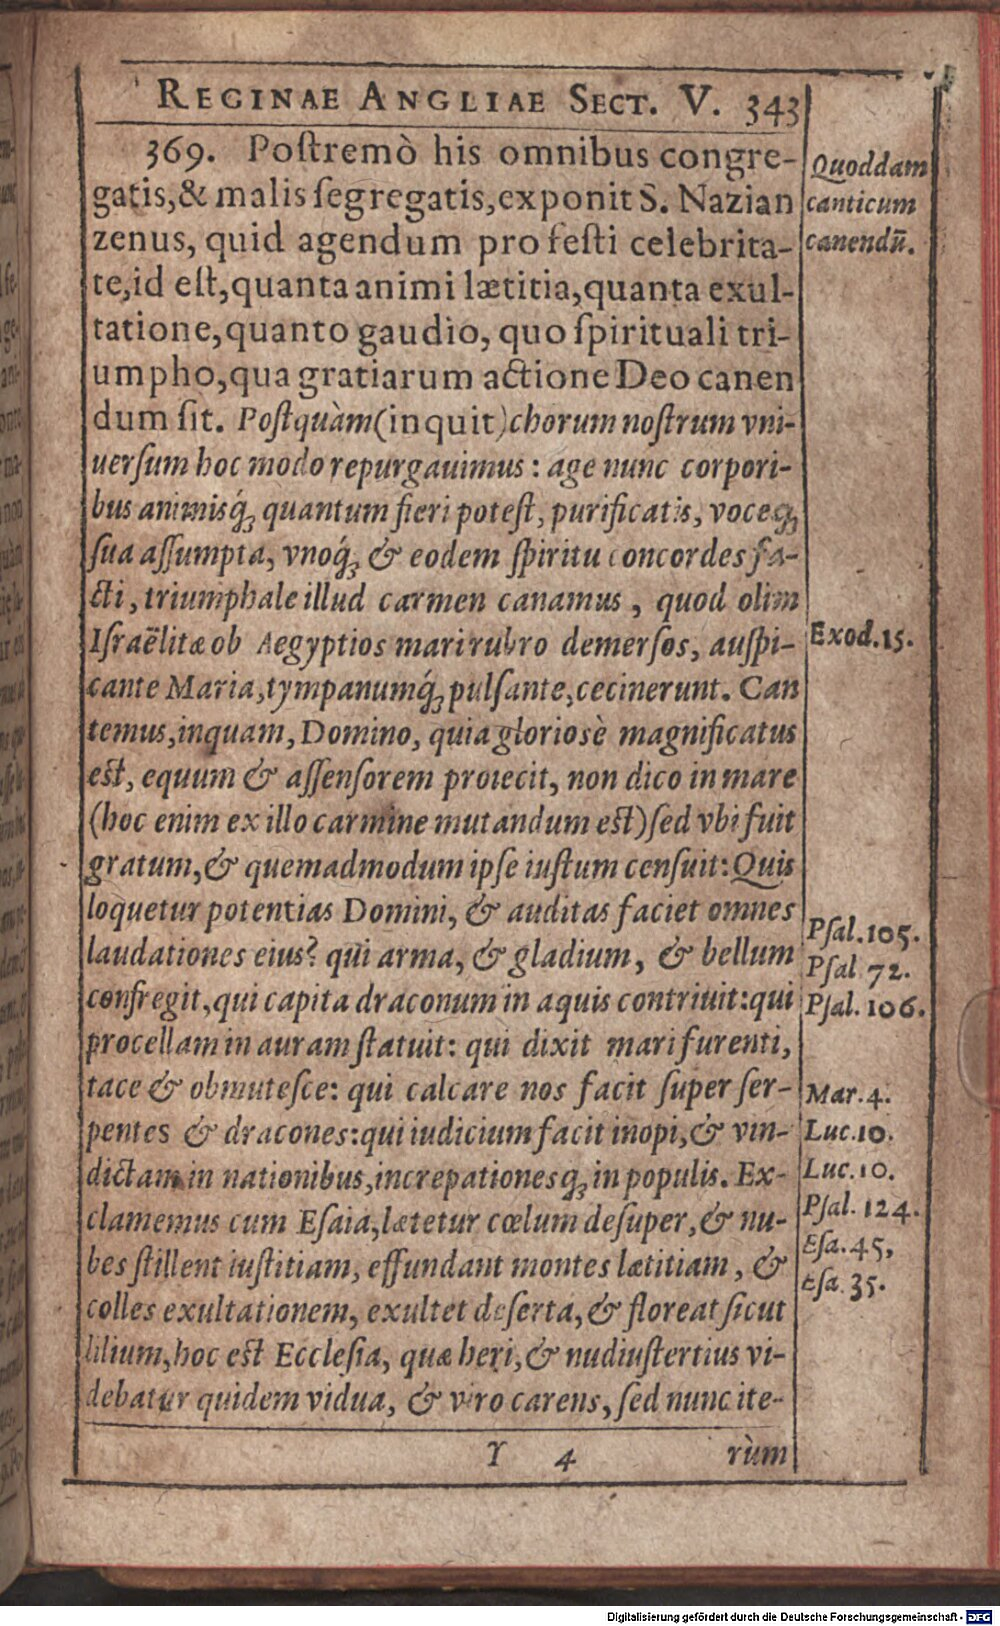 REGINAE ANGLIAE SECT. V. 343
369. Poſtremò his omnibus congre-
gatis,& malis ſegregatis,exponit S. Nazian
zenus, quid agendum pro feſti celebrita-
te,id eſt,quanta animi lætitia,quanta exul-
tatione,quanto gaudio, quo ſpirituali tri-
umpho,qua gratiarum actione Deo canen
dum ſit. Poſtquàm(inquit)chorum noſtrum vni-
uerſum hoc modo repurgauimus : age nunc corpori-
bus animisq́ꝫ quantum fieri poteſt, purificatis, voceqꝫ
ſua aſſumpta, vnoq́ꝫ & eodem ſpiritu concordes fa-
cti, triumphale illud carmen canamus, quod olim
Iſraëlitæ ob Aegyptios mari rubro demerſos, auſpi-
cante Maria,tympanumq́ꝫ pulſante,cecinerunt. Can
temus,inquam, Domino, quia glorioſè magnificatus
eſt, equum & aſſenſorem proiecit, non dico in mare
(hoc enim ex illo carmine mutandum eſt)ſed vbi fuit
gratum,& quemadmodum ipſe iuſtum cenſuit: Quis
loquetur potentias Domini, & auditas faciet omnes
laudationes eius? qui arma, & gladium, & bellum
confregit,qui capita draconum in aquis contriuit:qui
procellam in auram ſtatuit: qui dixit mari furenti,
tace & obmuteſce: qui calcare nos facit ſuper ſer-
pentes & dracones:qui iudicium facit inopi,& vin-
dictam in nationibus,increpationesqꝫ in populis. Ex-
clamemus cum Eſaia,lætetur cœlum deſuper,& nu-
bes ſtillent iuſtitiam, effundant montes lætitiam, &
colles exultationem, exultet deſerta,& floreat ſicut
lilium,hoc eſt Eccleſia, quæ heri,& nudiuſtertius vi-
debatur quidem vidua, & viro carens, ſed nunc ite-
Y 4 rùm
Quoddam
canticum
canendū.
Exod.15.
Pſal.105.
Pſal 72.
Pſal.106.
Mar.4.
Luc.10.
Luc.10.
Pſal.124.
Eſa.45,
Eſa.35.
Digitalisierung gefördert durch die Deutsche Forschungsgemeinschaft - DFG